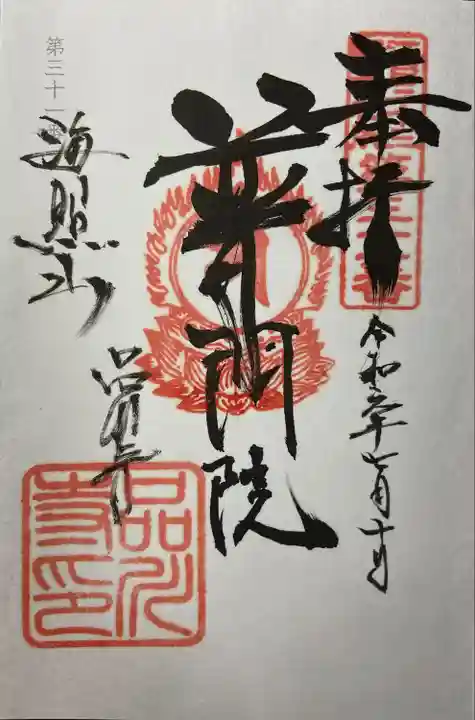 第三十一番
奉拝
令和六年七月十日
普門院
海照山
品川寺
品川寺印